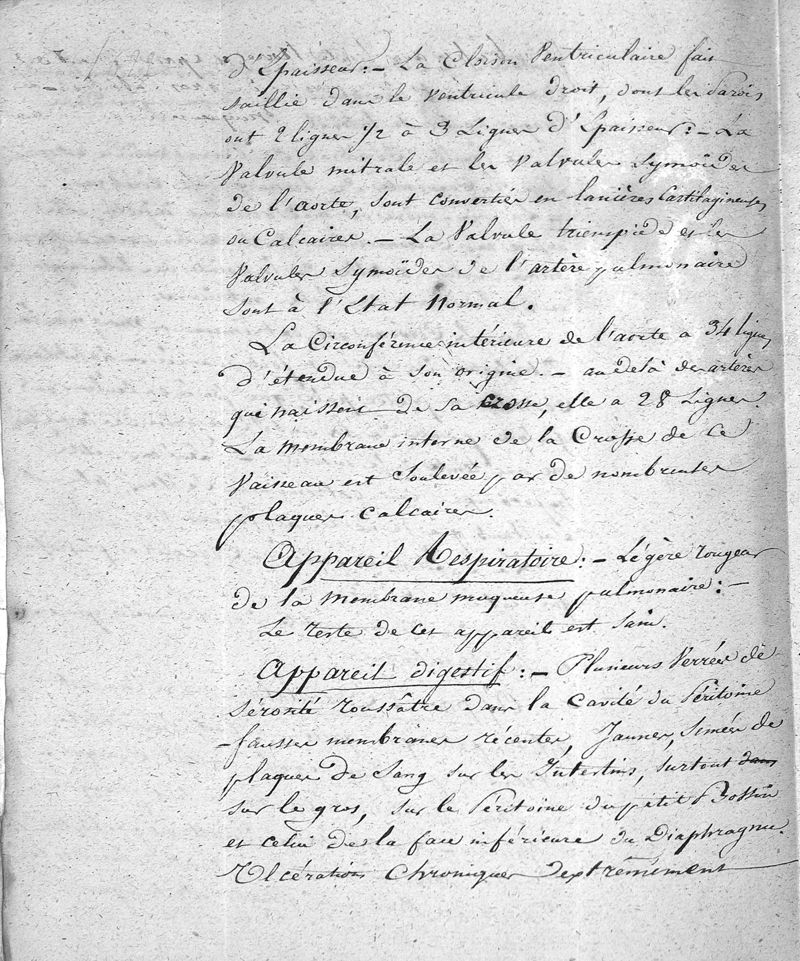 d'Épaisseur :- La Cloison Ventriculaire fait
saillie dans le Ventricule droit, dont les Parois
ont 2 lignes 1/2 à 3 Lignes d'Épaisseur :- La
Valvule mitrale et les Valvules Symoïdes
de l'aorte, sont converties en lanières Cartilagineuses
ou Calcaires. - La Valvule triuspide et les
Valvules Symoïdes de l'artère pulmonaire
sont à l'État Normal.
La Circonférence intérieure de l'aorte a 34 lignes
d'étendue à son origine. - au delà des artères
qui naissent de sa crosse, elle a 28 Lignes.
La membrane interne de la Crosse de ce
Vaisseau est Soulevée par de nombreuses
plaques Calcaires.
Appareil Respiratoire :- Légère rougeur
de la membrane muqueuse pulmonaire :-
Le reste de cet appareil est Sain.
Appareil digestif :- Plusieurs Verrées de
Sérosité roussâtre dans la Cavité du Péritoine
- fausses membranes récentes, Jaunes, Semées de
plaques de Sang sur les Intestins, surtout dans
sur le gros, sur le Péritoine du petit Bassin
et celui de la face inférieure du Diaphragme.
Ulcérations Chroniques d'extrêmement